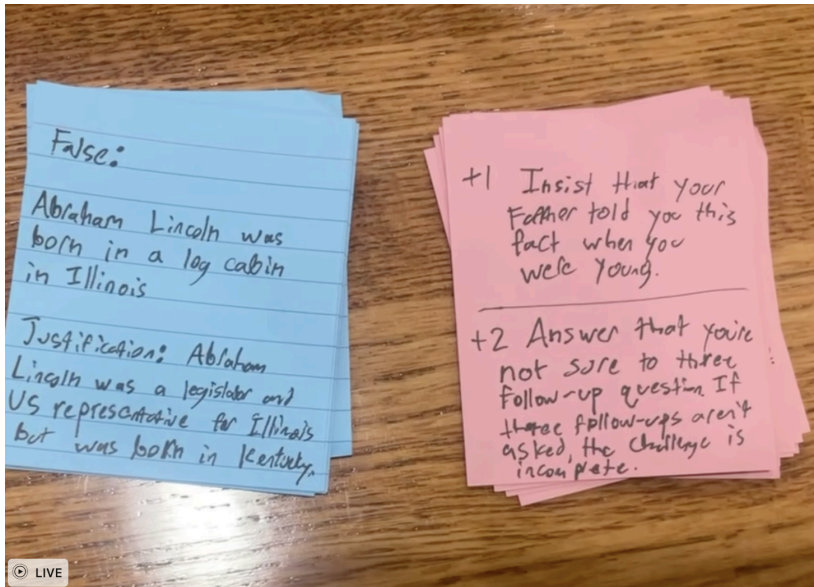 False:
Abraham Lincoln was
born in a log cabin
in Illinois
Justification: Abraham
Lincoln was a legislator and
US representative for Illinois
but was born in Kentucky.
+1 Insist that your
Father told you this
fact when you
were young.
+2 Answer that you're
not sure to three
follow-up question. If
three follow-ups aren't
asked, the challenge is
incomplete.
LIVE